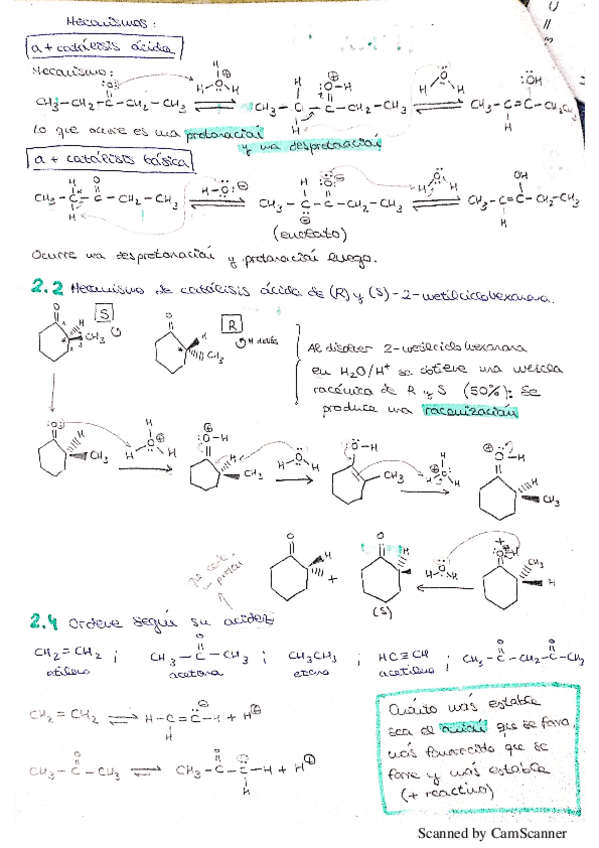 Mecanismos:
a + catálisis ácida
Mecanismo:
CH₃-CH₂-C-CH₂-CH₃ ⇌ CH₃-C-C-CH₂-CH₃ ⇌ CH₃-C=C-CH₂CH₃
Lo que ocurre es una protonación
y una desprotonación
a + catálisis básica
CH₃-C-C-CH₂-CH₃ ⇌ CH₃-C-C-CH₂-CH₃ ⇌ CH₃-C=C-CH₂-CH₃
(enolato)
Ocurre una desprotonación y protonación luego.
2.2 Mecanismo de catálisis ácida de (R) y (S)-2-metilciclohexanona.
S
R
H detrás
Al disolver 2-metilciclohexanona
en H₂O/H⁺ se obtiene una mezcla
racémica de R y S (50%): Se
produce una racemización
(S)
2.4 Ordene según su acidez
CH₂=CH₂ ; CH₃-C-CH₃ ; CH₃CH₃ ; HC≡CH ; CH₃-C-CH₂-C-CH₃
etileno acetona etano acetileno
CH₂=CH₂ ⇌ H-C=C-H + H⊕
CH₃-C-CH₃ ⇌ CH₃-C-C-H + H⊕
Cuánto más estable
sea el anión que se forma,
más favorecido que se
forme y más estable
(+ reactivo)
Scanned by CamScanner